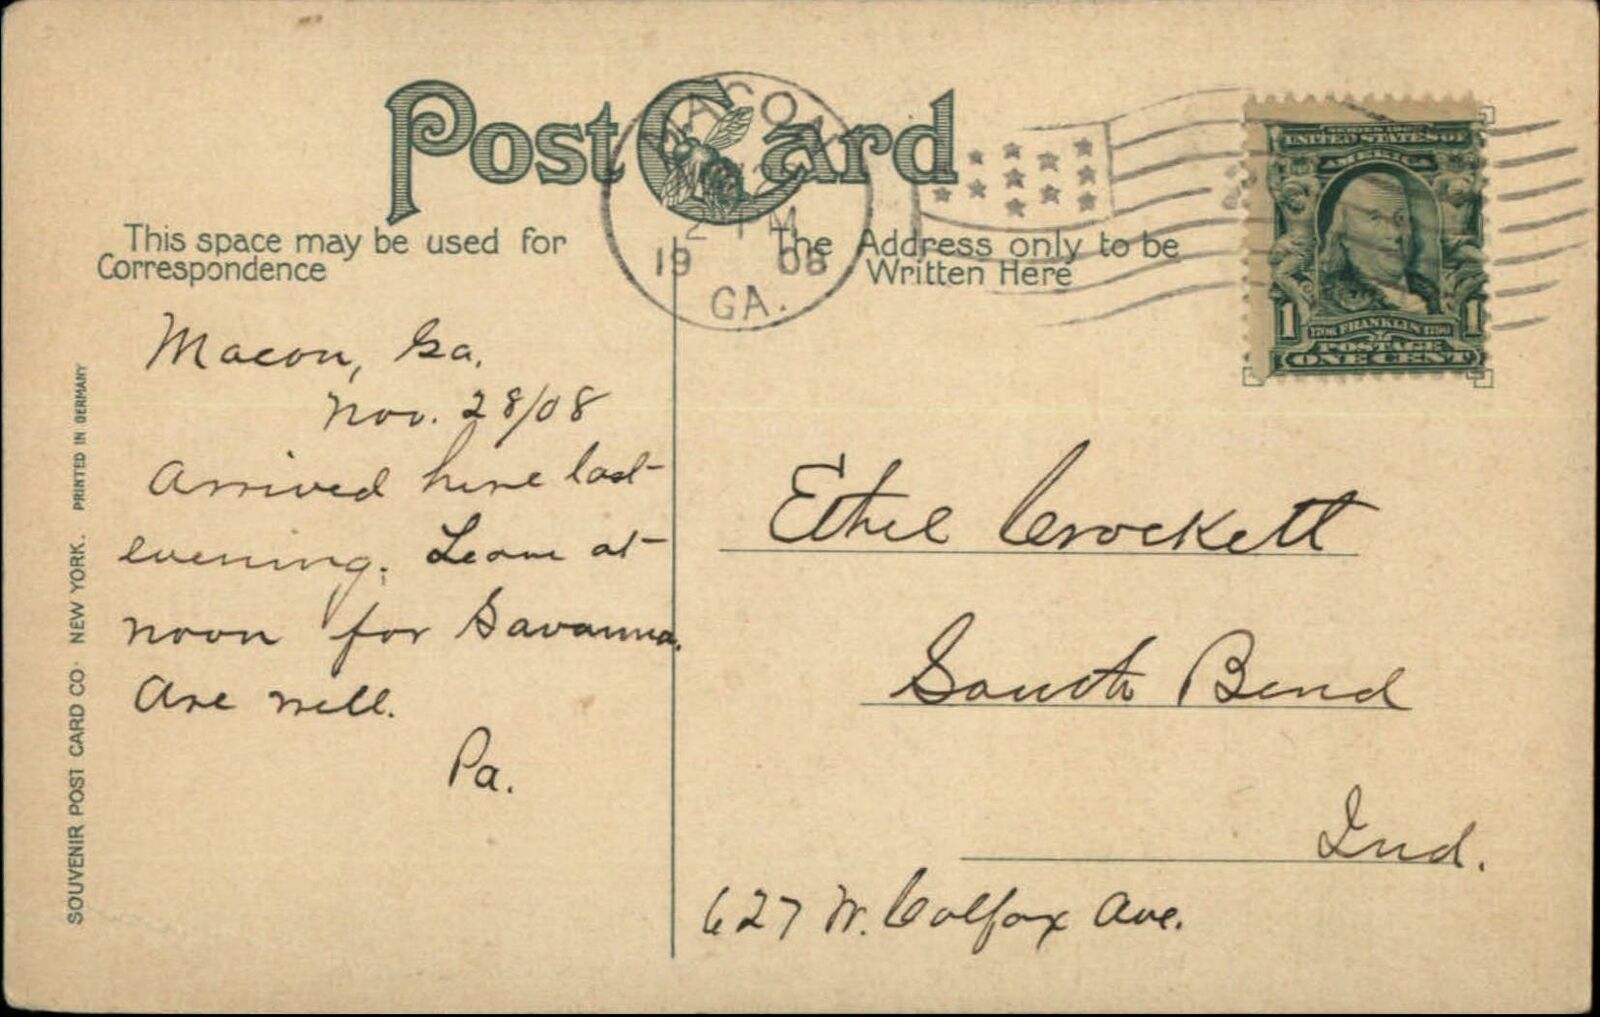 Post Card
This space may be used for
Correspondence
The Address only to be
Written Here
MACON
2 PM
19 08
GA.
UNITED STATES OF
AMERICA
1 1706 FRANKLIN 1790 1
POSTAGE
ONE CENT
Macon, Ga.
Nov. 28/08
Arrived here last
evening. Leave at
noon for Savanna.
Are well.
Pa.
Ethel Crockett
South Bend
Ind.
627 W. Colfax Ave.
SOUVENIR POST CARD CO. NEW YORK. PRINTED IN GERMANY